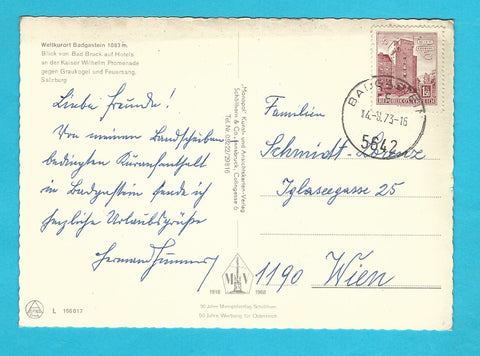 Weltkurort Badgastein 1083 m
Blick von Bad Bruck auf Hotels
an der Kaiser Wilhelm Promenade
gegen Graukogel und Feuersang,
Salzburg
Liebe Freunde!
Von meinem Landschaften
bedingten Kuraufenthalt
in Badgastein sende ich
herzliche Urlaubsgrüße
Hermann
"Monopol" Kunst- und Ansichtskarten-Verlag
Schöllhorn & Co., Innsbruck,
REPUBLIK ÖSTERREICH
1.50
14.-8.73-15
5642
Familien
Schmidt-
Iglaseegasse 25
1190 Wien
1918 1968
50 Jahre Monopolverlag Schöllhorn
50 Jahre Werbung für Österreich
L 156017